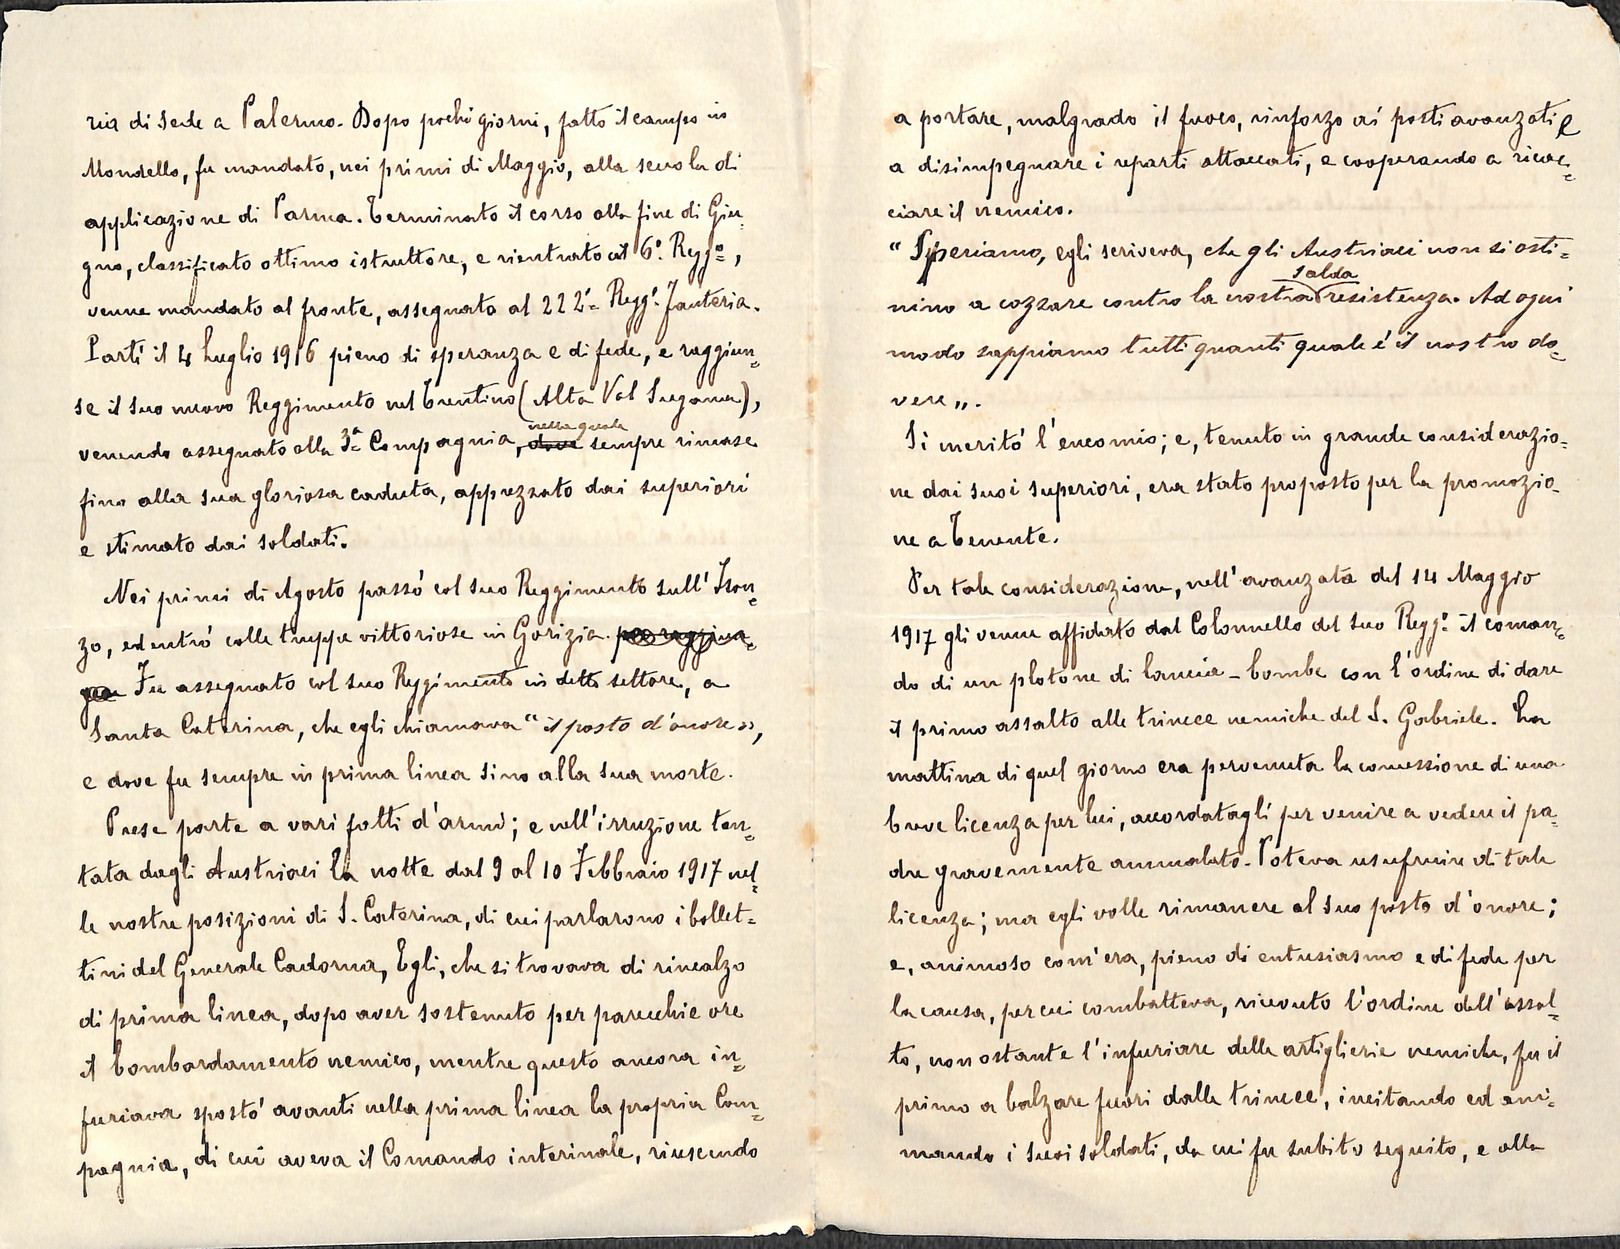 ria di sede a Palermo. Dopo pochi giorni, fatto il campo in
Mondello, fu mandato, nei primi di Maggio, alla scuola di
applicazione di Parma. Terminato il corso alla fine di Giu=
gno, classificato ottimo istruttore, e rientrato al 6º. Regg.º,
venne mandato al fronte, assegnato al 222º Regg.º Fanteria.
Partì il 4 Luglio 1916 pieno di speranza e di fede, e raggiun=
se il suo nuovo Reggimento nel Trentino (Alta Val Sugana),
nella quale
venendo assegnato alla 3ª Compagnia, dove sempre rimase
fino alla sua gloriosa caduta, apprezzato dai superiori
e stimato dai soldati.
Nei primi di Agosto passò col suo Reggimento sull'Ison=
zo, ed entrò colle truppe vittoriose in Gorizia.
Fu assegnato col suo Reggimento in detto settore, a
Santa Caterina, che egli chiamava "il posto d'onore",
e dove fu sempre in prima linea sino alla sua morte.
Prese parte a vari fatti d'armi; e nell'irruzione ten=
tata dagli Austriaci la notte dal 9 al 10 Febbraio 1917 nel=
le nostre posizioni di S. Caterina, di cui parlarono i bollet=
tini del Generale Cadorna, Egli, che si trovava di rincalzo
di prima linea, dopo aver sostenuto per parecchie ore
il bombardamento nemico, mentre questo ancora in=
furiava spostò avanti nella prima linea la propria Com=
pagnia, di cui aveva il Comando interinale, riuscendo
a portare, malgrado il fuoco, rinforzo ai posti avanzati e
a disimpegnare i reparti attaccati, e cooperando a ricac=
ciare il nemico.
"Speriamo, egli scriveva, che gli Austriaci non si osti=
salda
nino a cozzare contro la nostra resistenza. Ad ogni
modo sappiamo tutti quanti quale è il nostro do=
vere".
Si meritò l'encomio; e, tenuto in grande considerazio=
ne dai suoi superiori, era stato proposto per la promozio=
ne a Tenente.
Per tale considerazione, nell'avanzata del 14 Maggio
1917 gli venne affidato dal Colonnello del suo Regg.º il coman=
do di un plotone di lancia-bombe con l'ordine di dare
il primo assalto alle trincee nemiche del S. Gabriele. La
mattina di quel giorno era pervenuta la concessione di una
breve licenza per lui, accordatagli per venire a vedere il pa=
dre gravemente ammalato. Poteva usufruire di tale
licenza; ma egli volle rimanere al suo posto d'onore;
e, animoso com'era, pieno di entusiasmo e di fede per
la causa, per cui combatteva, ricevuto l'ordine dell'assal=
to, nonostante l'infuriare delle artiglierie nemiche, fu il
primo a balzare fuori dalle trincee, incitando ed ani=
mando i suoi soldati, da cui fu subito seguito, e alla